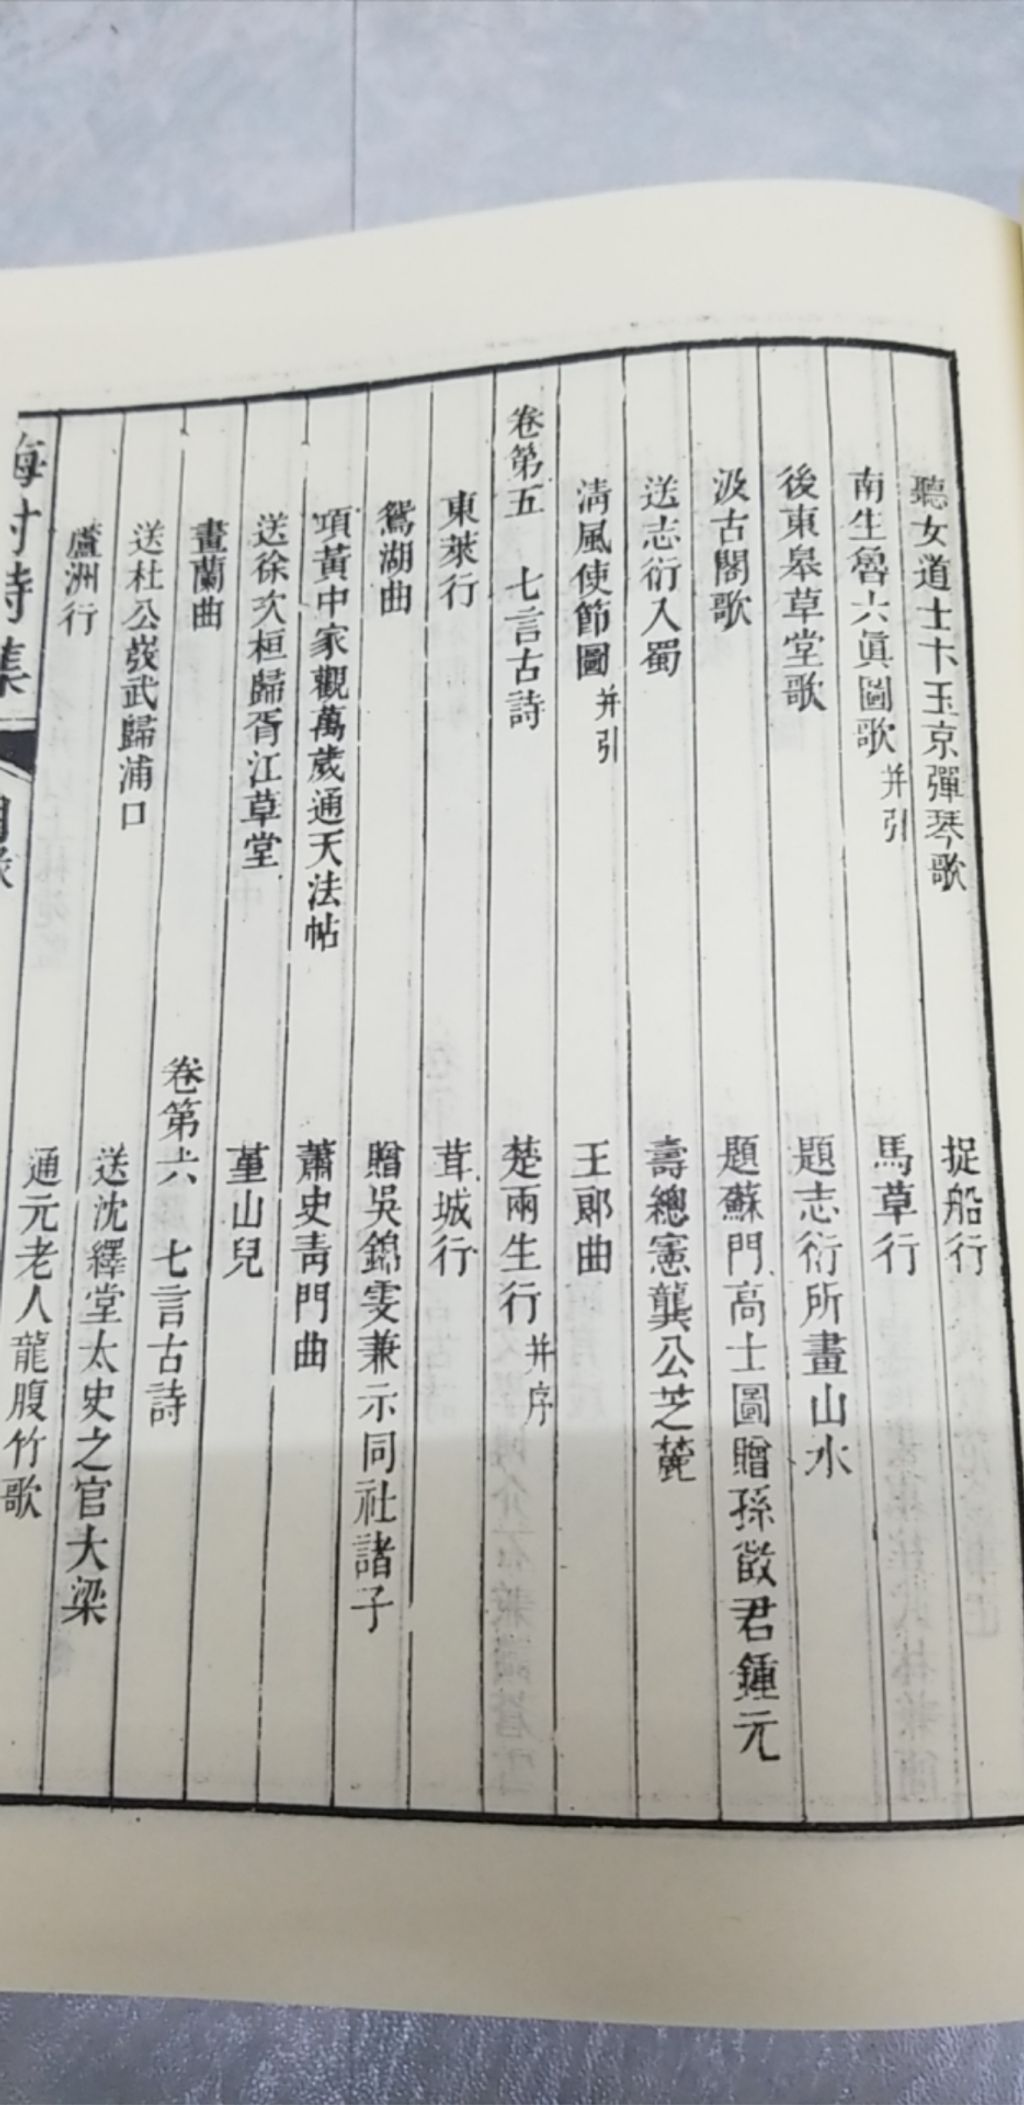 聽女道士卞玉京彈琴歌 捉船行
南生魯六眞圖歌并引 馬草行
後東皋草堂歌 題志衍所畫山水
汲古閣歌 題蘇門高士圖贈孫徵君鍾元
送志衍入蜀 壽總憲龔公芝麓
清風使節圖并引 王郎曲
卷第五 七言古詩 楚兩生行并序
東萊行 茸城行
鴛湖曲 贈吳錦雯兼示同社諸子
項黃中家觀萬歲通天法帖 蕭史青門曲
送徐次桓歸胥江草堂 堇山兒
畫蘭曲 卷第六 七言古詩
送杜公弢武歸浦口 送沈繹堂太史之官大梁
蘆洲行 通元老人龍腹竹歌
梅村詩集 目錄